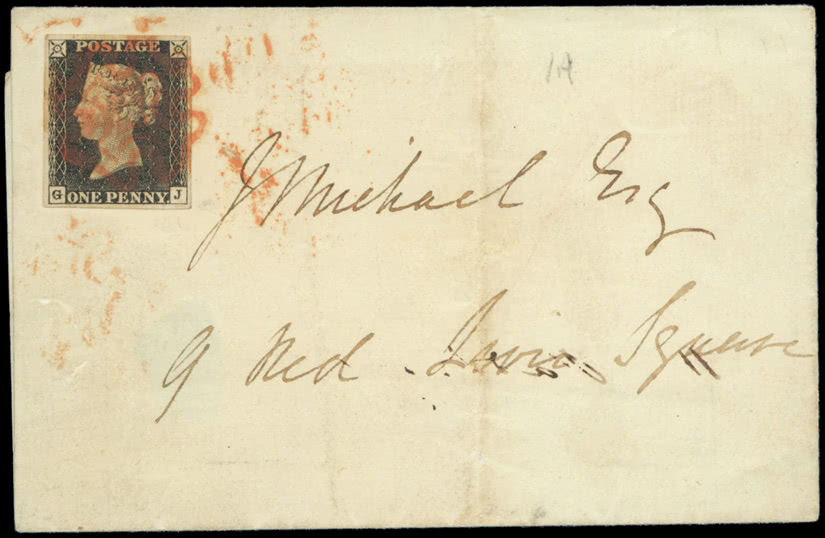 POSTAGE
G ONE PENNY. J
1A
J Michael Esq
9 Red Lion Square